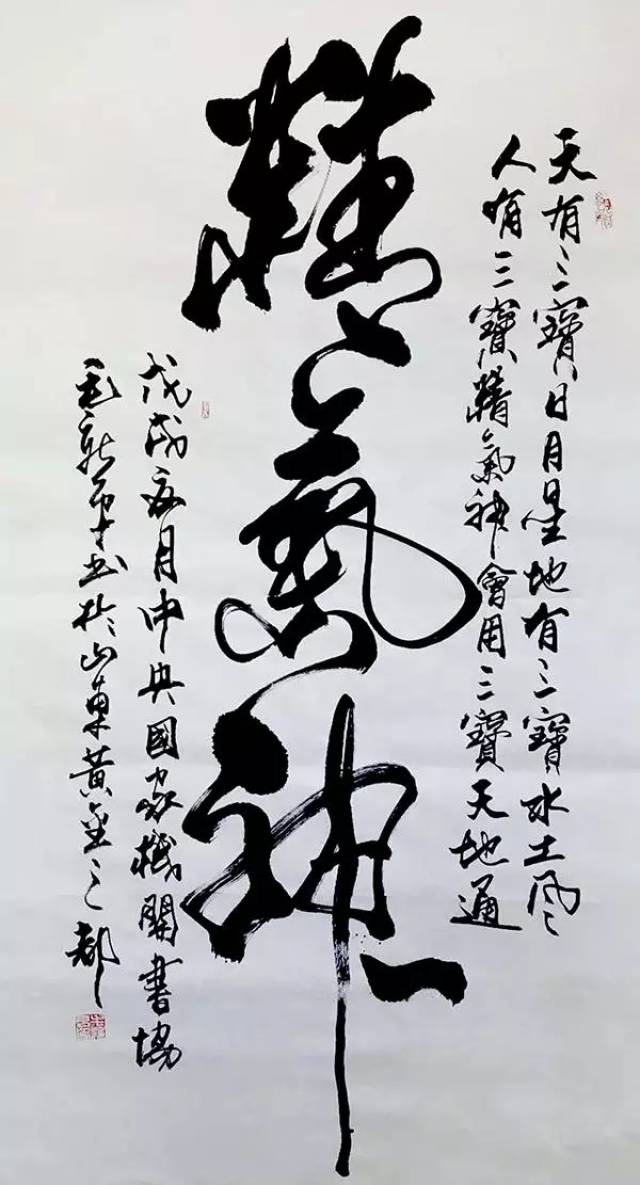 天有三寶日月星地有三寶水土風
人有三寶精氣神會用三寶天地通
精氣神
戊戌夏月中央國家機關書協
毛新 书於山東黃金之都